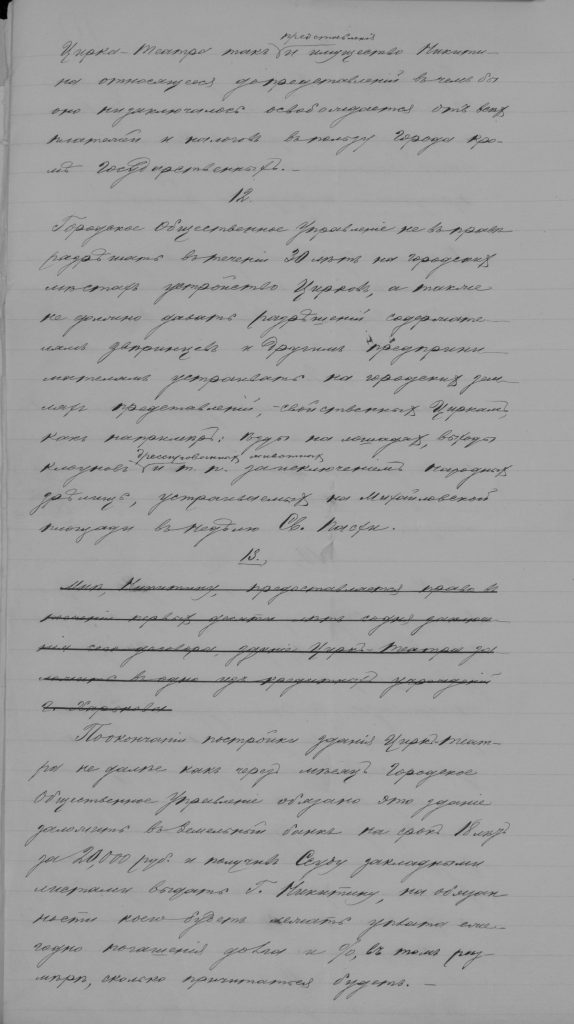 представленія
Цирка-Театра такъ и имущество Никити-
на относящееся до представленій въ чемъ бы
оно ни заключалось освобождается отъ всѣхъ
платежей и налоговъ въ пользу Города кро-
мѣ Государственныхъ. —
12.
Городское Общественное Управленіе не въ правѣ
разрѣшать въ теченіи 30 лѣтъ на городскихъ
мѣстахъ устройство Цирковъ, а также
не должно давать разрѣшеній содержате-
лямъ звѣринцевъ и другимъ предприни-
мателямъ устраивать на городскихъ зем-
ляхъ представленій, свойственныхъ Циркамъ,
какъ напримѣръ: ѣзды на лошадяхъ, выходы
дрессированныхъ животныхъ
клоуновъ и т. п. за исключеніемъ народныхъ
зрѣлищъ, устраиваемыхъ на Михайловской
площади въ недѣлю Св. Пасхи.
13.
Мнѣ, Никитину, предоставляется право въ
теченіи первыхъ десяти лѣтъ со дня заключе-
нія сего договора, зданіе Цирка-Театра за-
ложить въ одно изъ кредитныхъ учрежденій
г. Харькова
По окончаніи постройки зданія Цирка-Теат-
ра не далѣе какъ черезъ мѣсяцъ Городское
Общественное Управленіе обязано это зданіе
заложить въ Земельный банкъ на срокъ 18 лѣтъ
за 20,000 руб. и получивъ Ссуду закладными
листами выдать Г. Никитину, на обязан-
ности коего будетъ лежать уплата еже-
годно погашенія долга и %, въ томъ раз-
мѣрѣ, сколько причитаться будетъ. —